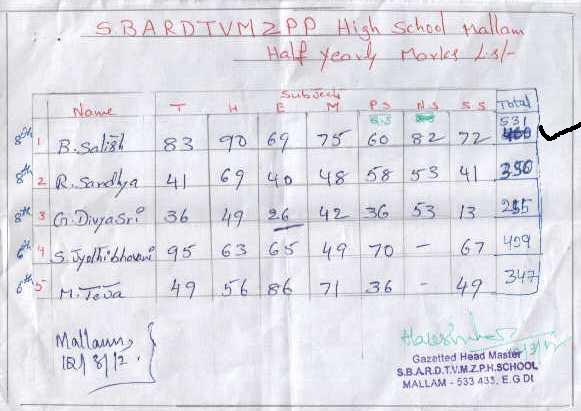 S.B.A.R.D.T.V.M.Z.P.P High School Mallam
Half Yearly Marks List
Subjects
Name T H E M P.S N.S S.S Total
B.S
8th 1 B. Satish 83 90 69 75 60 82 72 531
8th 2 R. Sandhya 41 69 40 48 58 53 41 350
8th 3 G. DivyaSri 36 49 26 42 36 53 13 255
6th 4 S. Jyothibhavani 95 63 65 49 70 - 67 409
6th 5 M. Teja 49 56 86 71 36 - 49 347
Mallam,
12/3/12.
Gazetted Head Master
S.B.A.R.D.T.V.M.Z.P.H.SCHOOL
MALLAM - 533 433, E.G DI